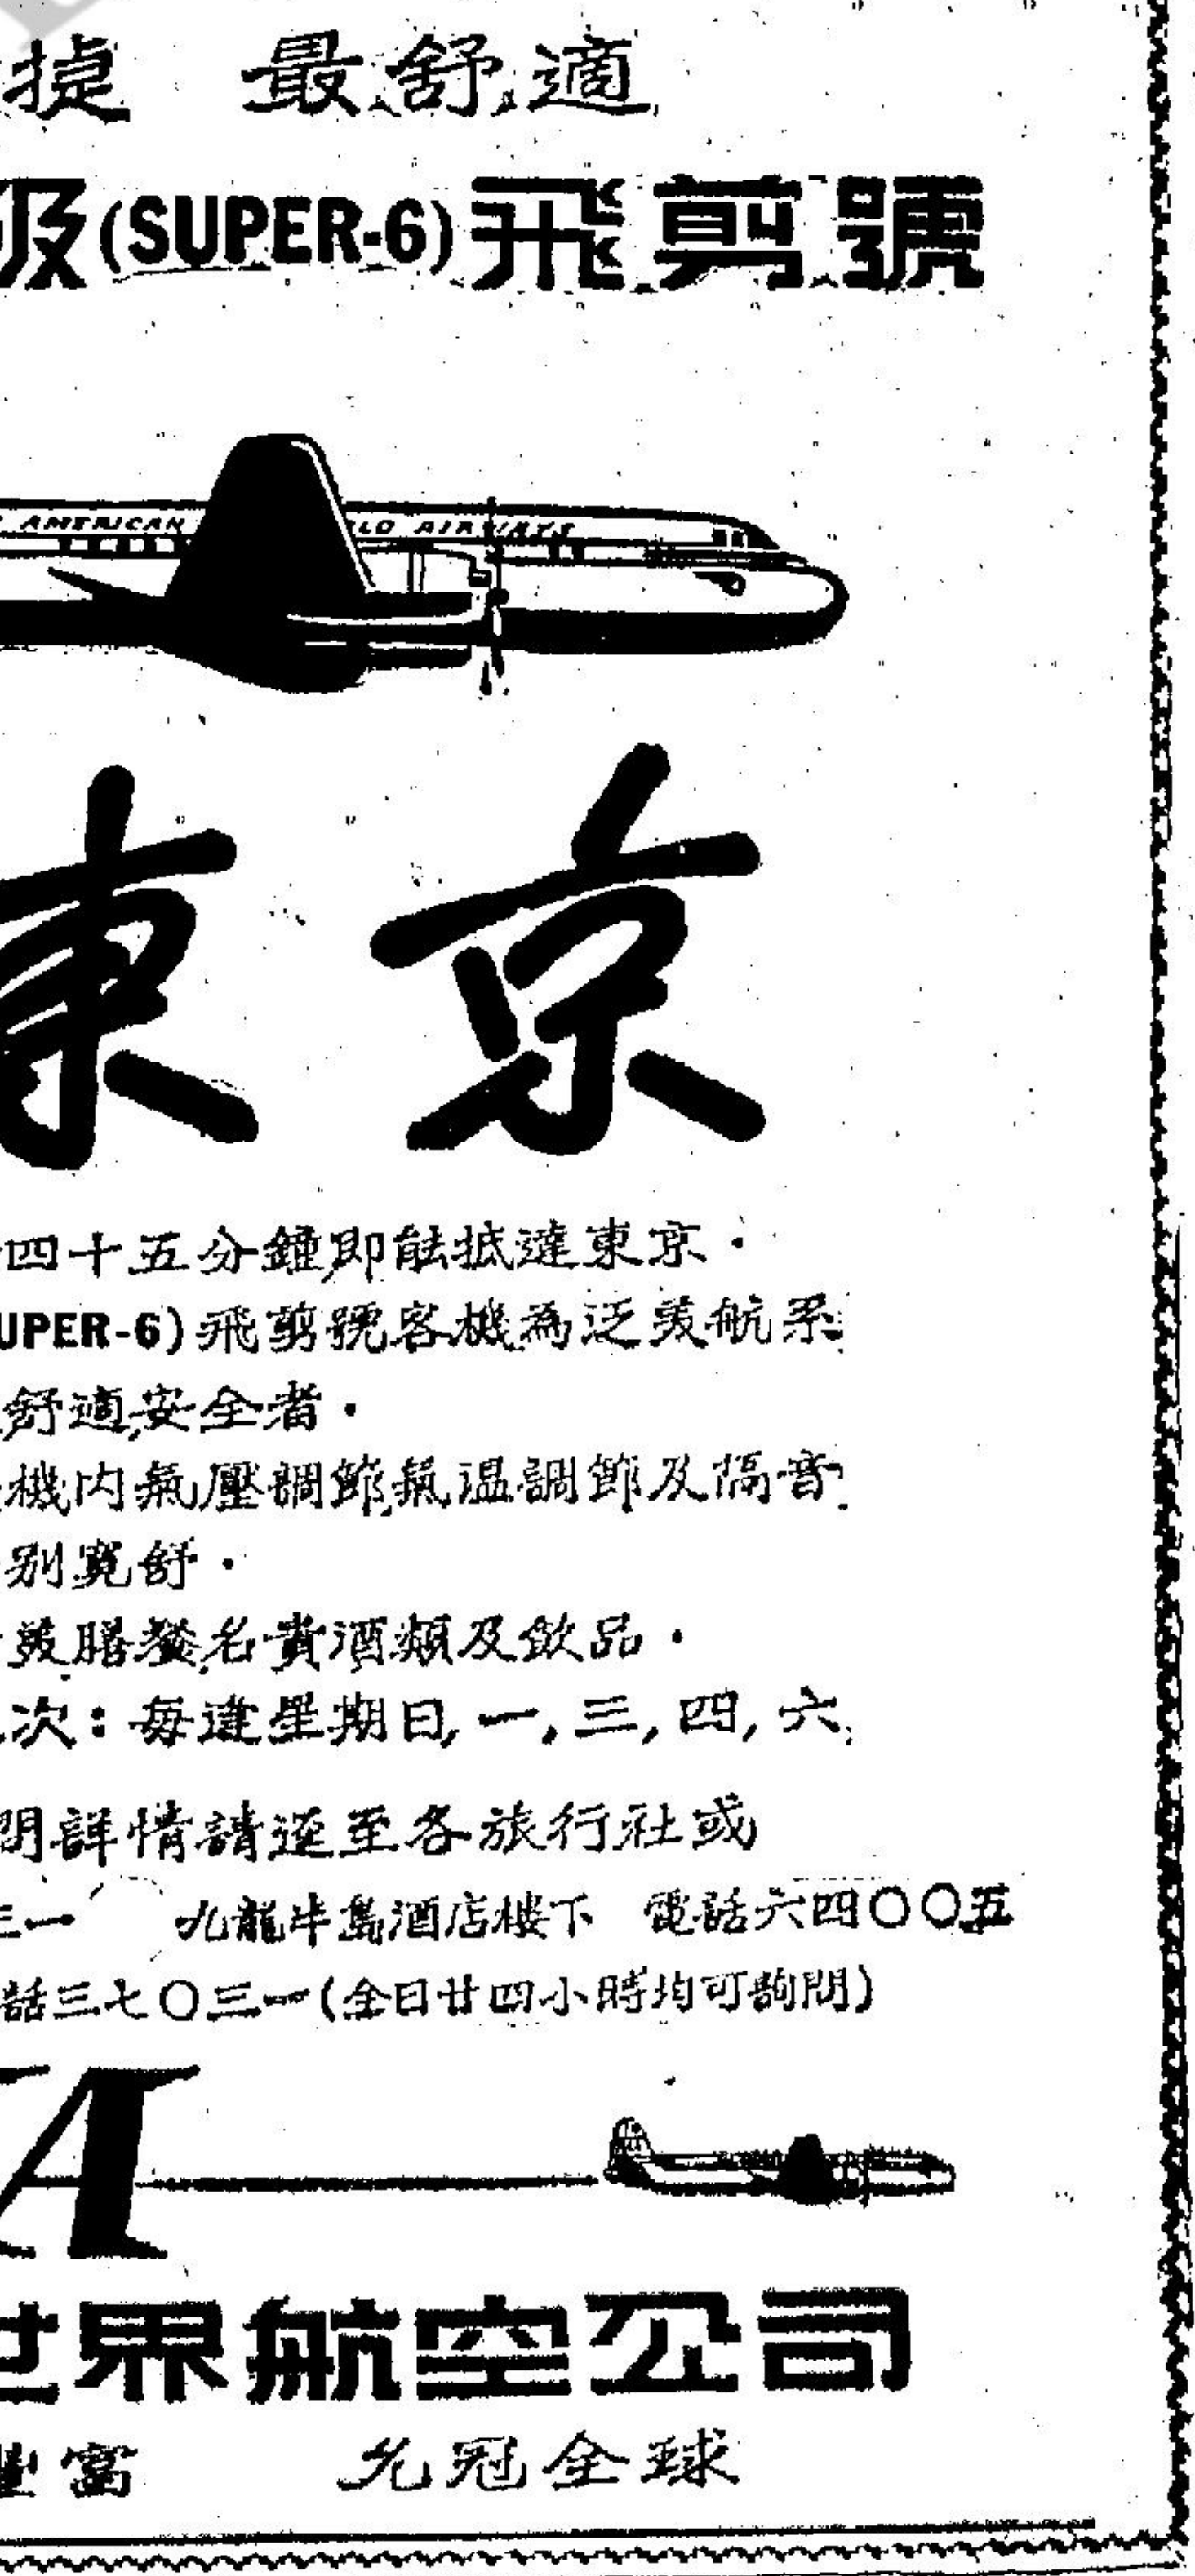 捷 最舒適
級(SUPER-6)飛剪號
AMERICAN LD AIRWAYS
東京
四十五分鐘即能抵達東京·
UPER-6)飛剪號客機為泛美航系
舒適安全者·
機內氣壓調節氣溫調節及隔音
別寬舒·
美膳餐名貴酒類及飲品·
次:每逢星期日,一,三,四,六,
問詳情請逕至各旅行社或
三一 九龍半島酒店樓下 電話六四〇〇五
話三七〇三一(全日廿四小時均可詢問)
A
世界航空公司
豐富 允冠全球